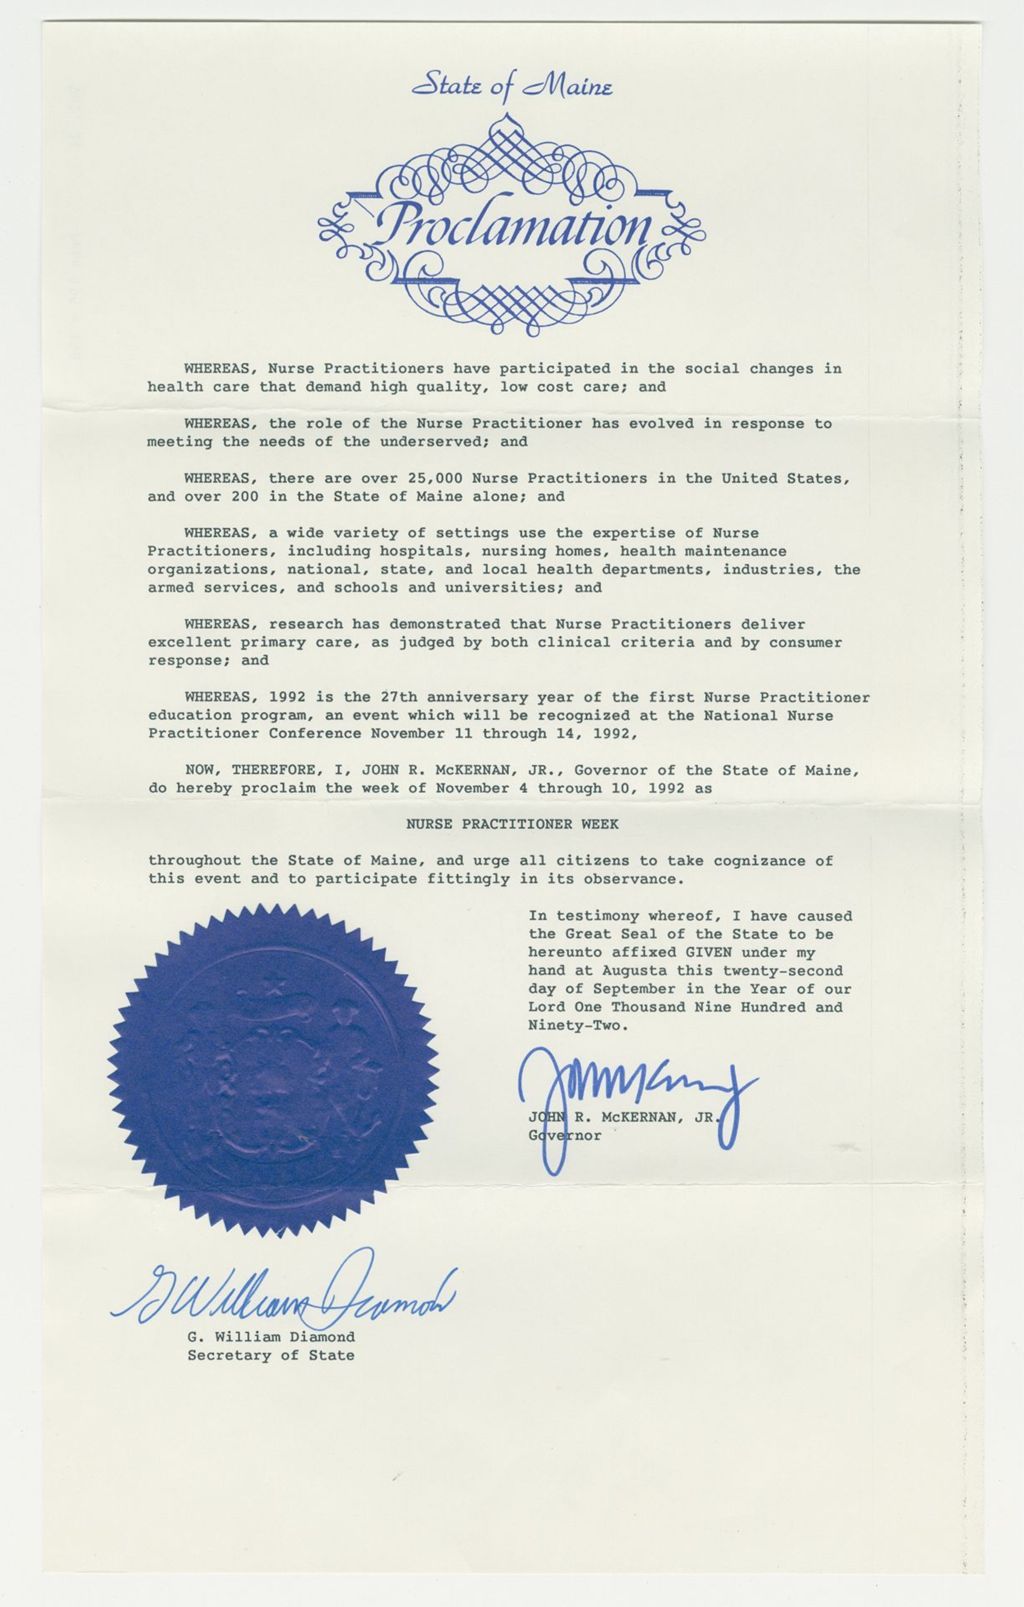 State of Maine
Proclamation
WHEREAS, Nurse Practitioners have participated in the social changes in
health care that demand high quality, low cost care; and
WHEREAS, the role of the Nurse Practitioner has evolved in response to
meeting the needs of the underserved; and
WHEREAS, there are over 25,000 Nurse Practitioners in the United States,
and over 200 in the State of Maine alone; and
WHEREAS, a wide variety of settings use the expertise of Nurse
Practitioners, including hospitals, nursing homes, health maintenance
organizations, national, state, and local health departments, industries, the
armed services, and schools and universities; and
WHEREAS, research has demonstrated that Nurse Practitioners deliver
excellent primary care, as judged by both clinical criteria and by consumer
response; and
WHEREAS, 1992 is the 27th anniversary year of the first Nurse Practitioner
education program, an event which will be recognized at the National Nurse
Practitioner Conference November 11 through 14, 1992,
NOW, THEREFORE, I, JOHN R. McKERNAN, JR., Governor of the State of Maine,
do hereby proclaim the week of November 4 through 10, 1992 as
NURSE PRACTITIONER WEEK
throughout the State of Maine, and urge all citizens to take cognizance of
this event and to participate fittingly in its observance.
In testimony whereof, I have caused
the Great Seal of the State to be
hereunto affixed GIVEN under my
hand at Augusta this twenty-second
day of September in the Year of our
Lord One Thousand Nine Hundred and
Ninety-Two.
JOHN R. McKERNAN, JR.
Governor
G William Diamond
G. William Diamond
Secretary of State